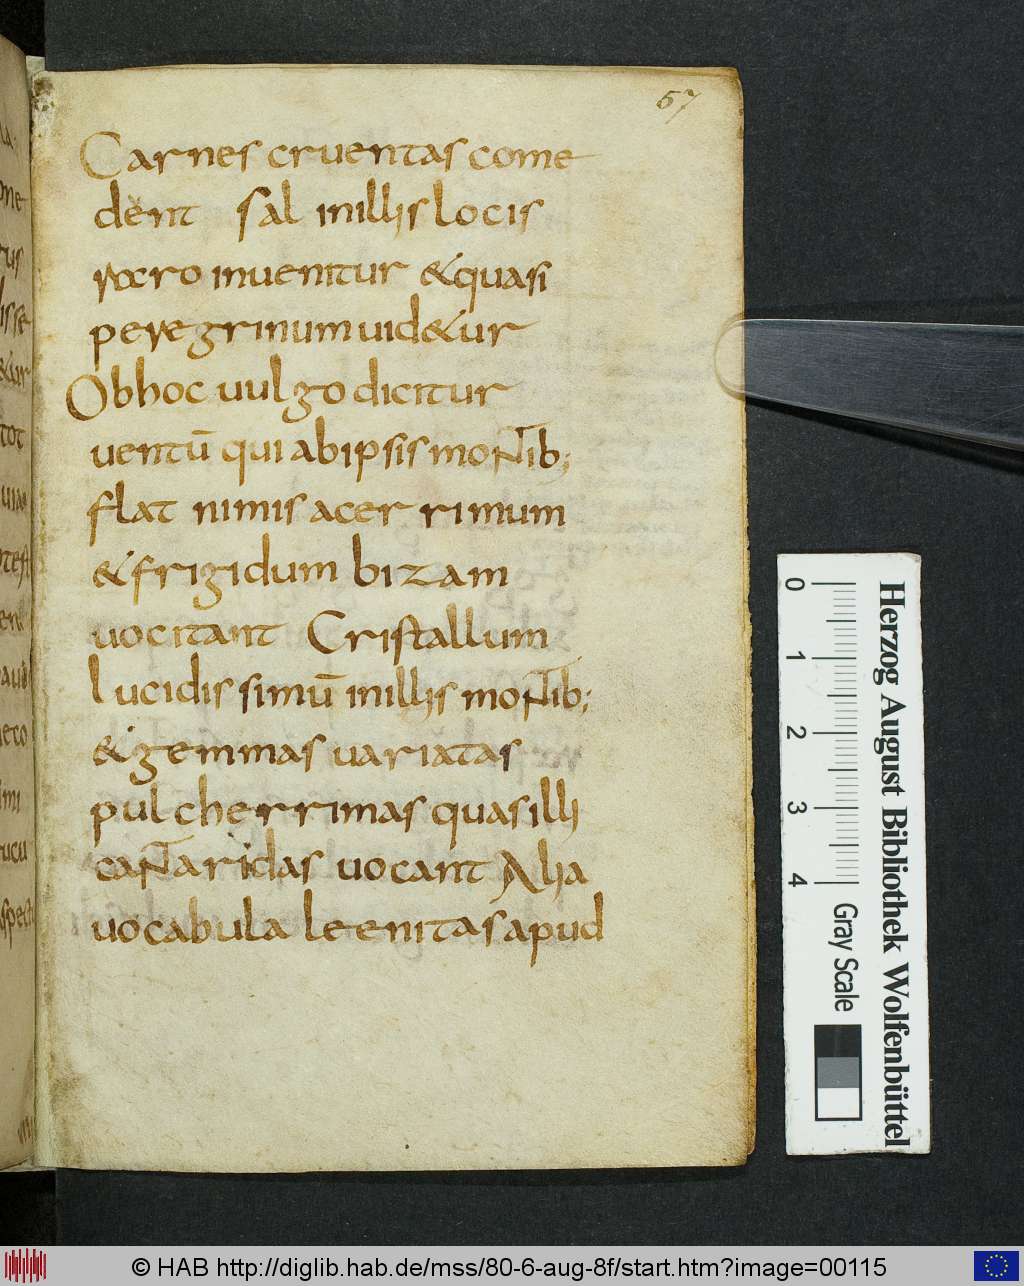 57
Carnes cruentas come
dent sal inillis locis
raro inuenitur &quasi
peregrinum uid&ur
Obhoc uulgo dicitur
uentū qui abipsis montib;
flat nimis acer rimum
&frigidum bizam
uocitant Cristallum
lucidissimū inillis montib;
&gemmas uariatas
pulcherrimas quasilli
cantaridas uocant Alia
uocabula leenitas apud
Herzog August Bibliothek Wolfenbüttel
0 1 2 3 4
Gray Scale
© HAB http://diglib.hab.de/mss/80-6-aug-8f/start.htm?image=00115